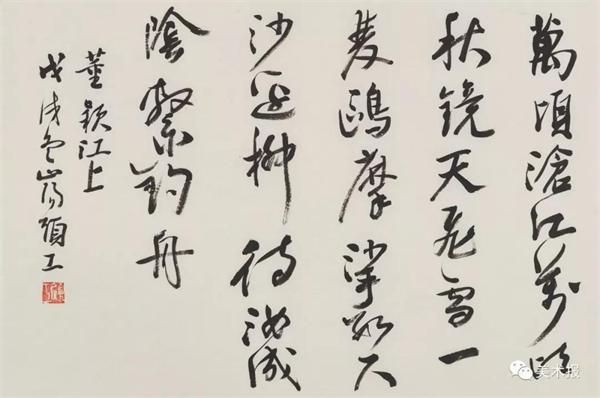 萬頃滄江萬頃
秋鏡天飛雪一
雙鷗摩挲數尺
沙邊柳待汝成
陰繫釣舟
董穎江上
戊戌
美术报